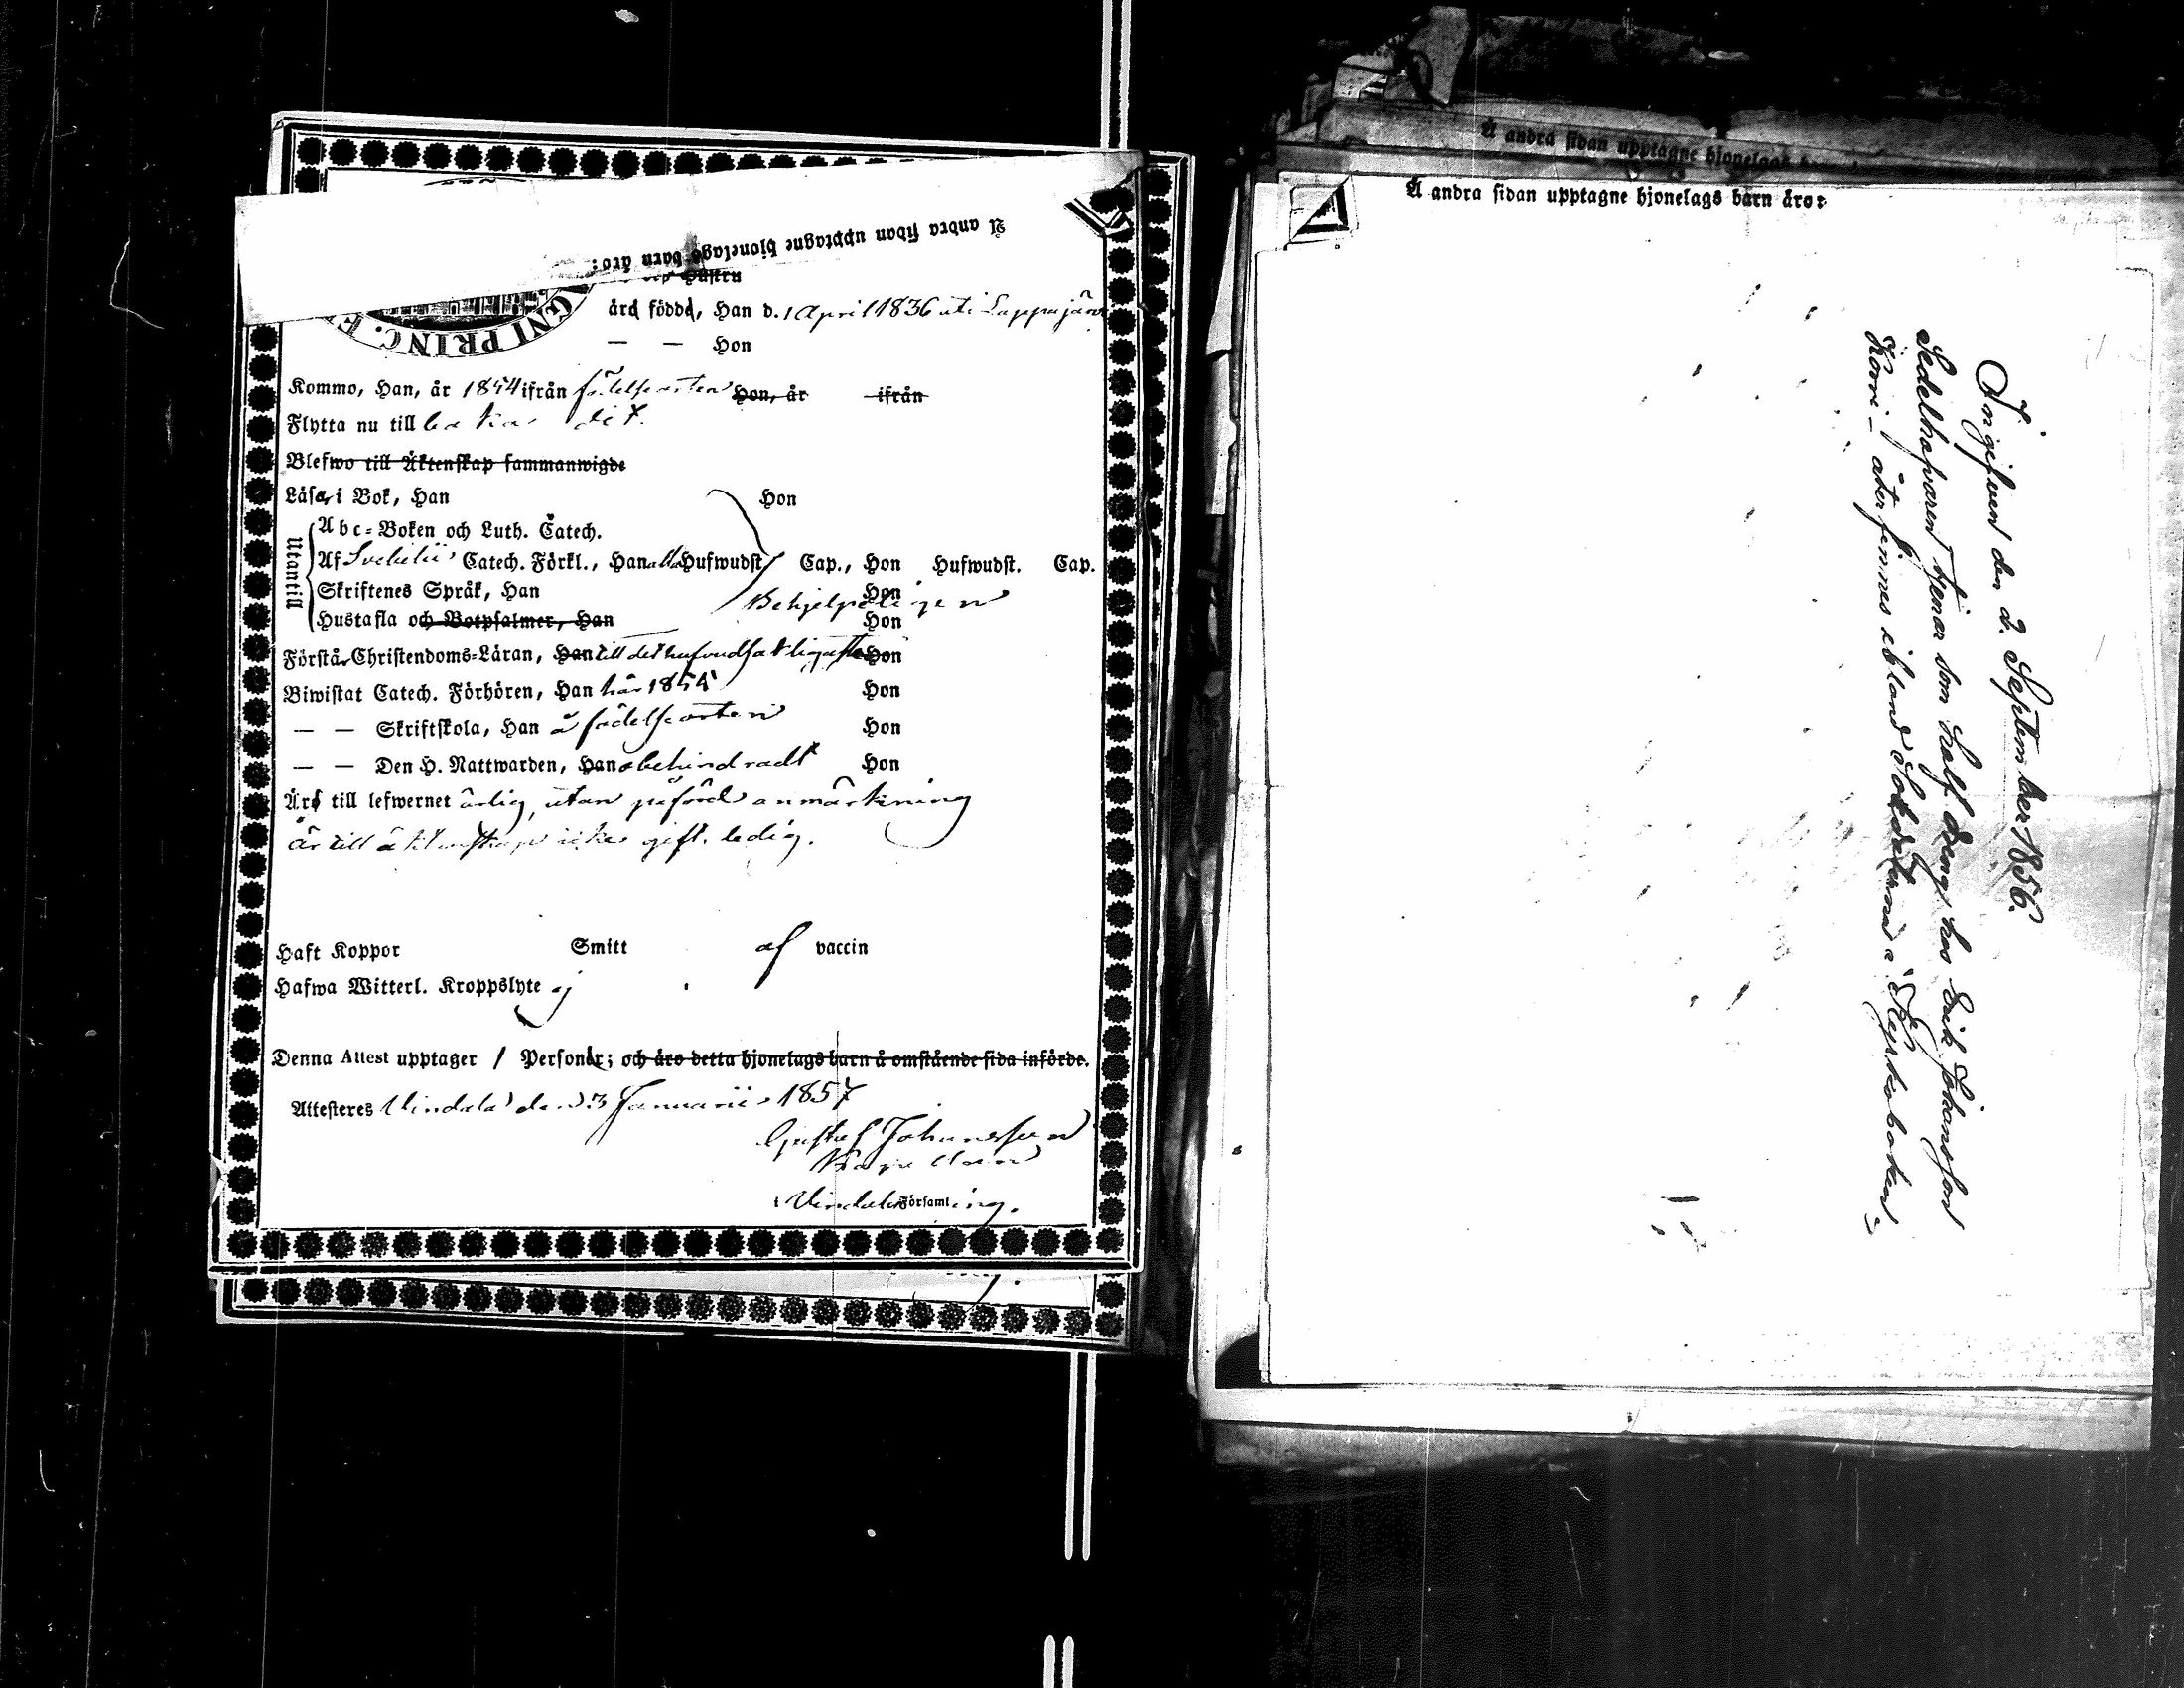 Å andra sidan upptagne hjonelags barn äro:
Hustru
GNI PRINC. F
äro födde, Han d. 1 April 1836 uti Lappajärvi
— — Hon
Kommo, Han, år 1854 ifrån födelseorten Hon, år ifrån
Flytta nu till baka dit.
Blefwo till Äktenskap sammanwigde
Läsa i Bok, Han Hon
Utantill
Abc-Boken och Luth. Catech.
Af Svebilii Catech. Förkl., Han alla Hufwudst. Cap., Hon Hufwudst. Cap.
Skriftenes Språk, Han Hon
Behjelpeligen
Hustafla och Botpsalmer, Han Hon
Förstår Christendoms-Läran, Han till det hufvudsakligaste Hon
Biwistat Catech. Förhören, Han här 1855 Hon
— — Skriftskola, Han å födelseorten Hon
— — Den H. Nattwarden, Han obehindradt Hon
Äro till lefwernet ärlig, utan påförd anmärkning
är till äktenskap icke gift. ledig.
Haft Koppor Smitt af vaccin
Hafwa Witterl. Kroppslyte ej
Denna Attest upptager 1 Personer; och äro detta hjonelags barn å omstående sida införde.
Attesteres Vindala den 3 Januarii 1857
Gustaf Johansson
Kapellan
i Vindala Församling.
Å andra sidan upptagne hjonelags barn
Å andra sidan upptagne hjonelags barn äro:
Ingifven den 2. September 1856.
Sedelhafvaren tjenar som half dreng hos Erik Johansson
Korri - återfinnes ibland Soldaterne å Kyrkobacken